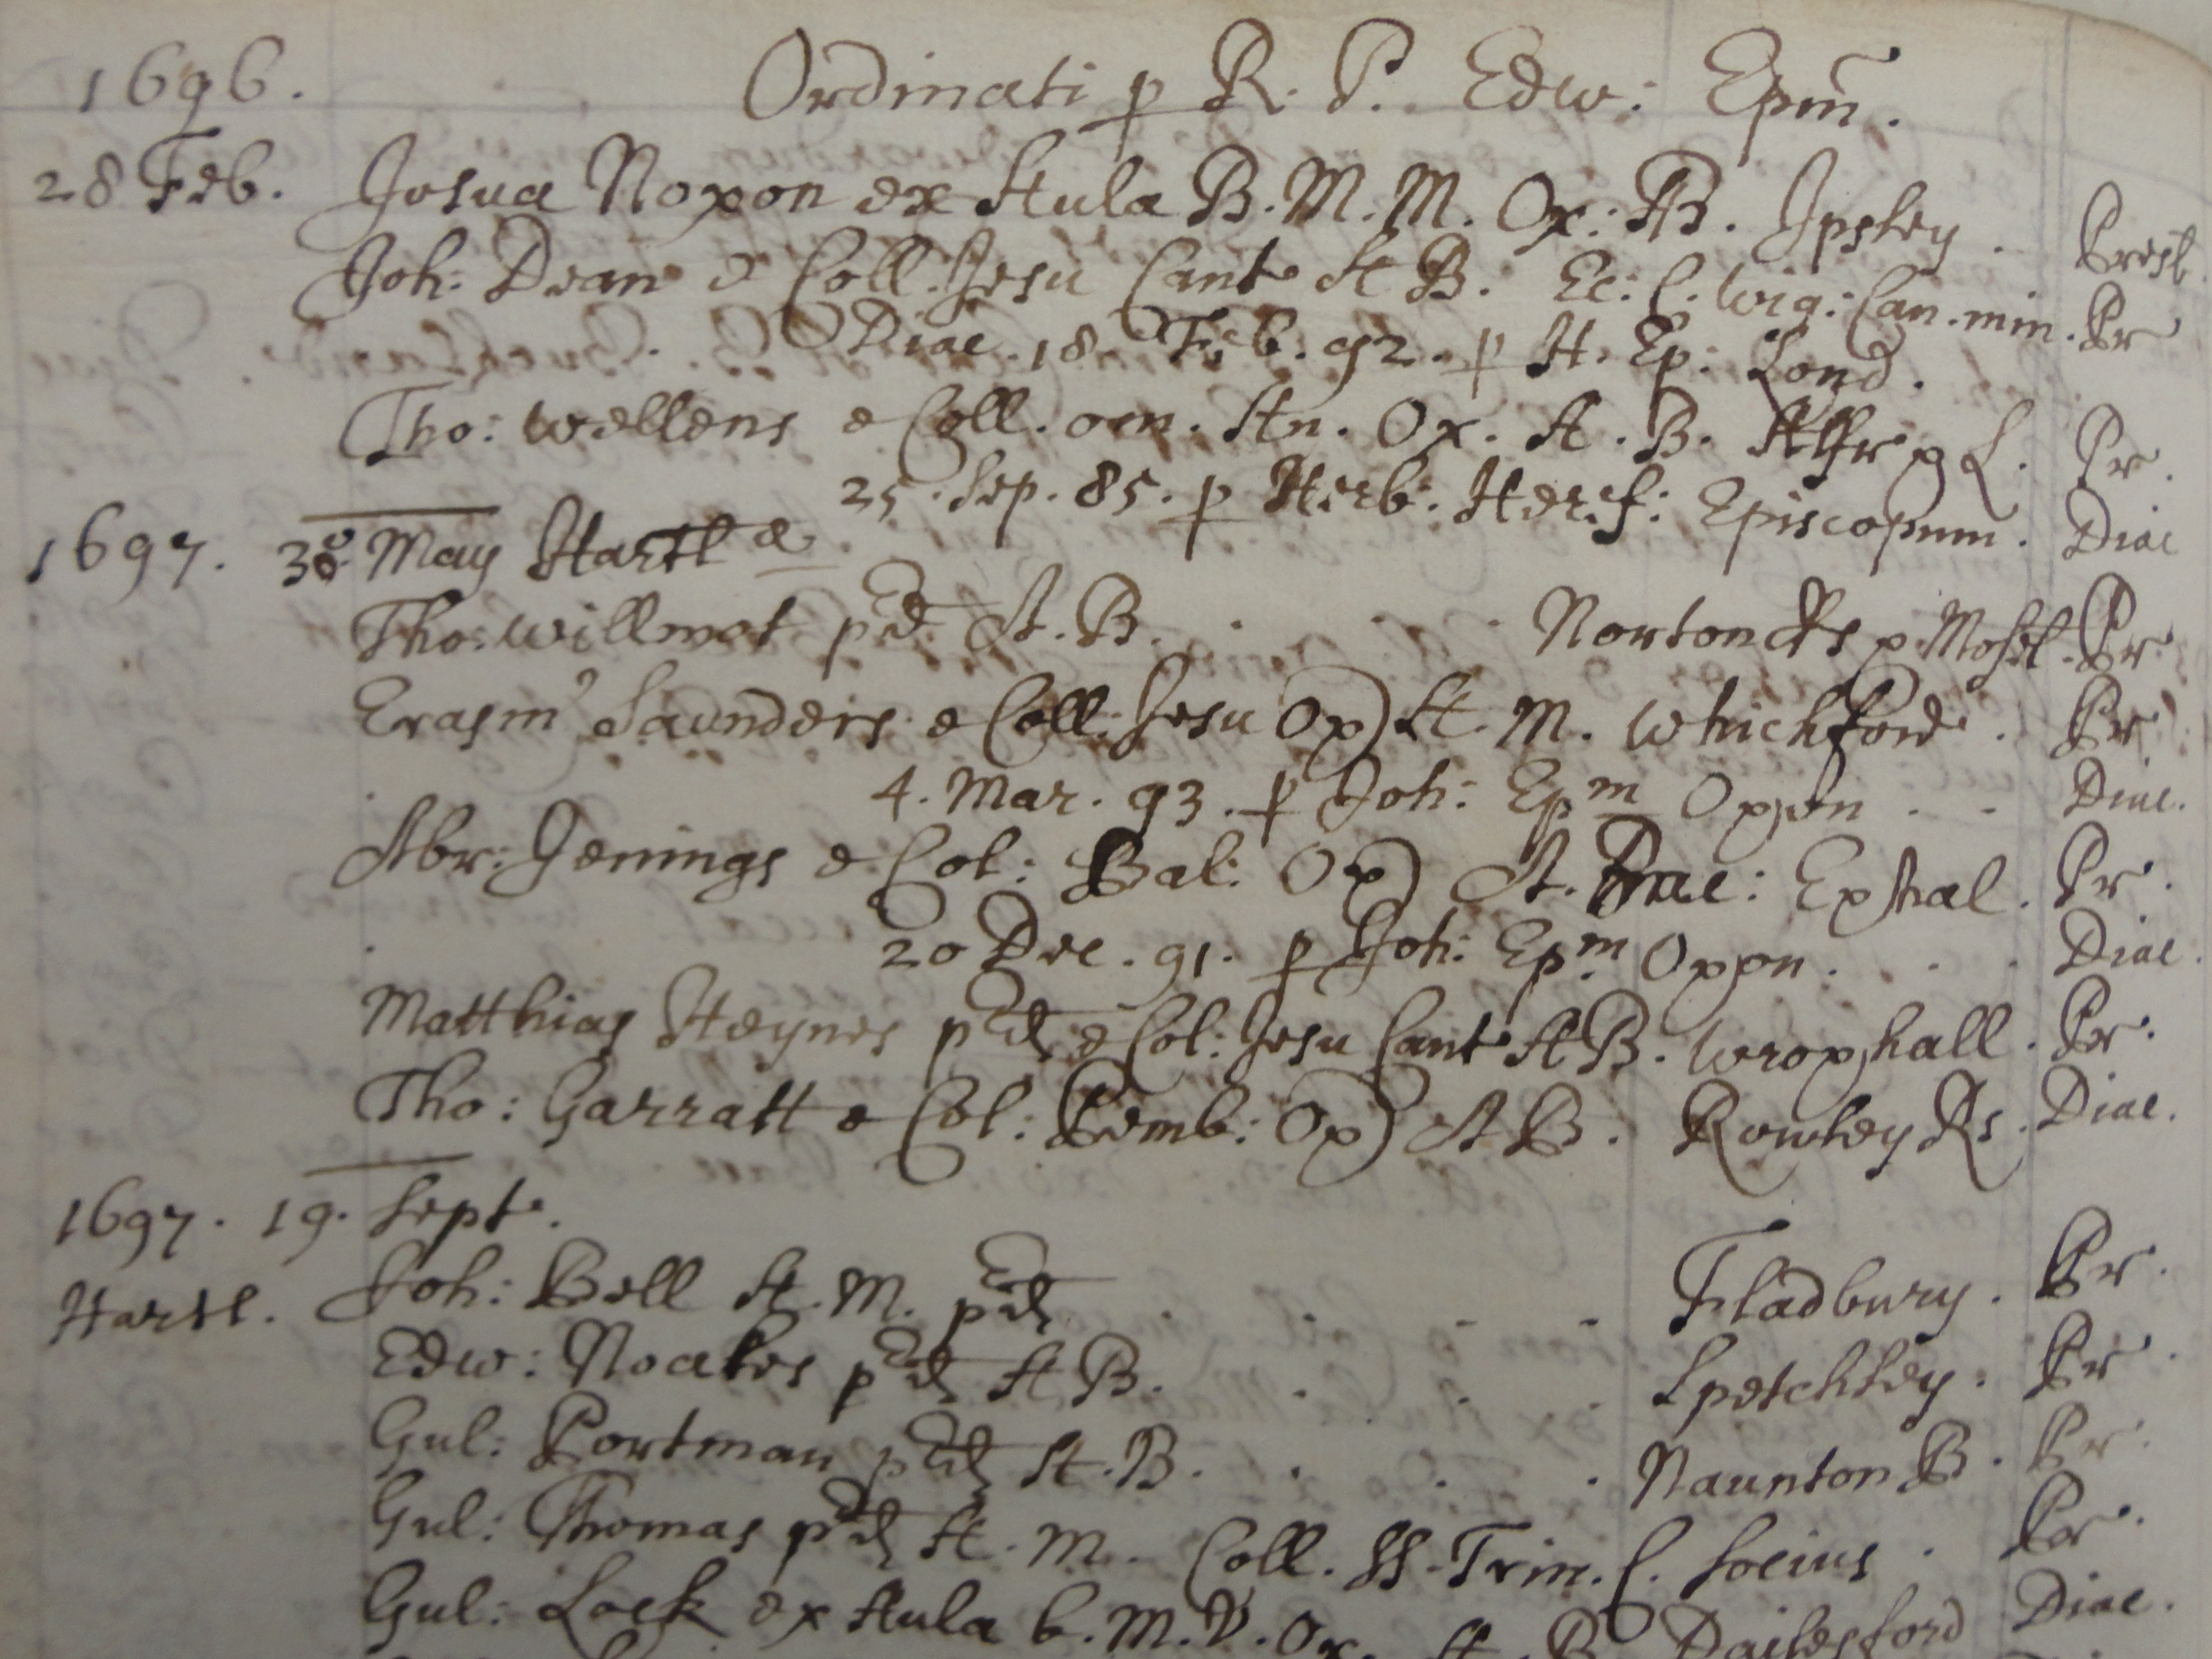 1696. Ordinati p R. P. Edw: Epm̃.
28 Feb. Josua Noxon ex Aula B. M. M. Ox: AB. Ipsley. Presb
Joh: Dean e Coll. Jesu Cant A B. Ec: C. Wig: Can. min. Pr
Diac. 18 Feb. 92. p H. Ep: Lond.
Tho: Wellens e Coll. om. An. Ox. A. B. L. Pr.
25. Sep. 85. p Herb. Heref: Episcopum. Diac
1697. 30 May Hartl
Tho: Willmot p'd A. B. Norton Rs p Mosel. Pr
Erasm' Saunders e Coll. Jesu Ox) A. M. Whichford. Pr
4. Mar. 93. p Joh: Epm Oxon. Diac.
Abr: Jenings e Col: Bal: Ox) A. Bac: Exhal. Pr.
20 Dec. 91. p Joh: Epm Oxon. Diac.
Matthias Heynes p'd e Col: Jesu Cant A B. Wroxhall. Pr.
Tho: Garratt e Col: Pemb: Ox) A B. Rowley Rs. Diac.
1697. 19. Sept.
Hartl. Joh: Bell A. M. p'd Fladbury. Pr.
Edw: Noakes p'd A B. Spetchley. Pr.
Gul: Portman p'd A. B. Naunton B. Pr.
Gul: Thomas p'd A. M. Coll. SS. Trin. C. Socius. Pr.
Gul: Lock ex Aula b. M. V. Ox. A. B. Dailesford Diac.